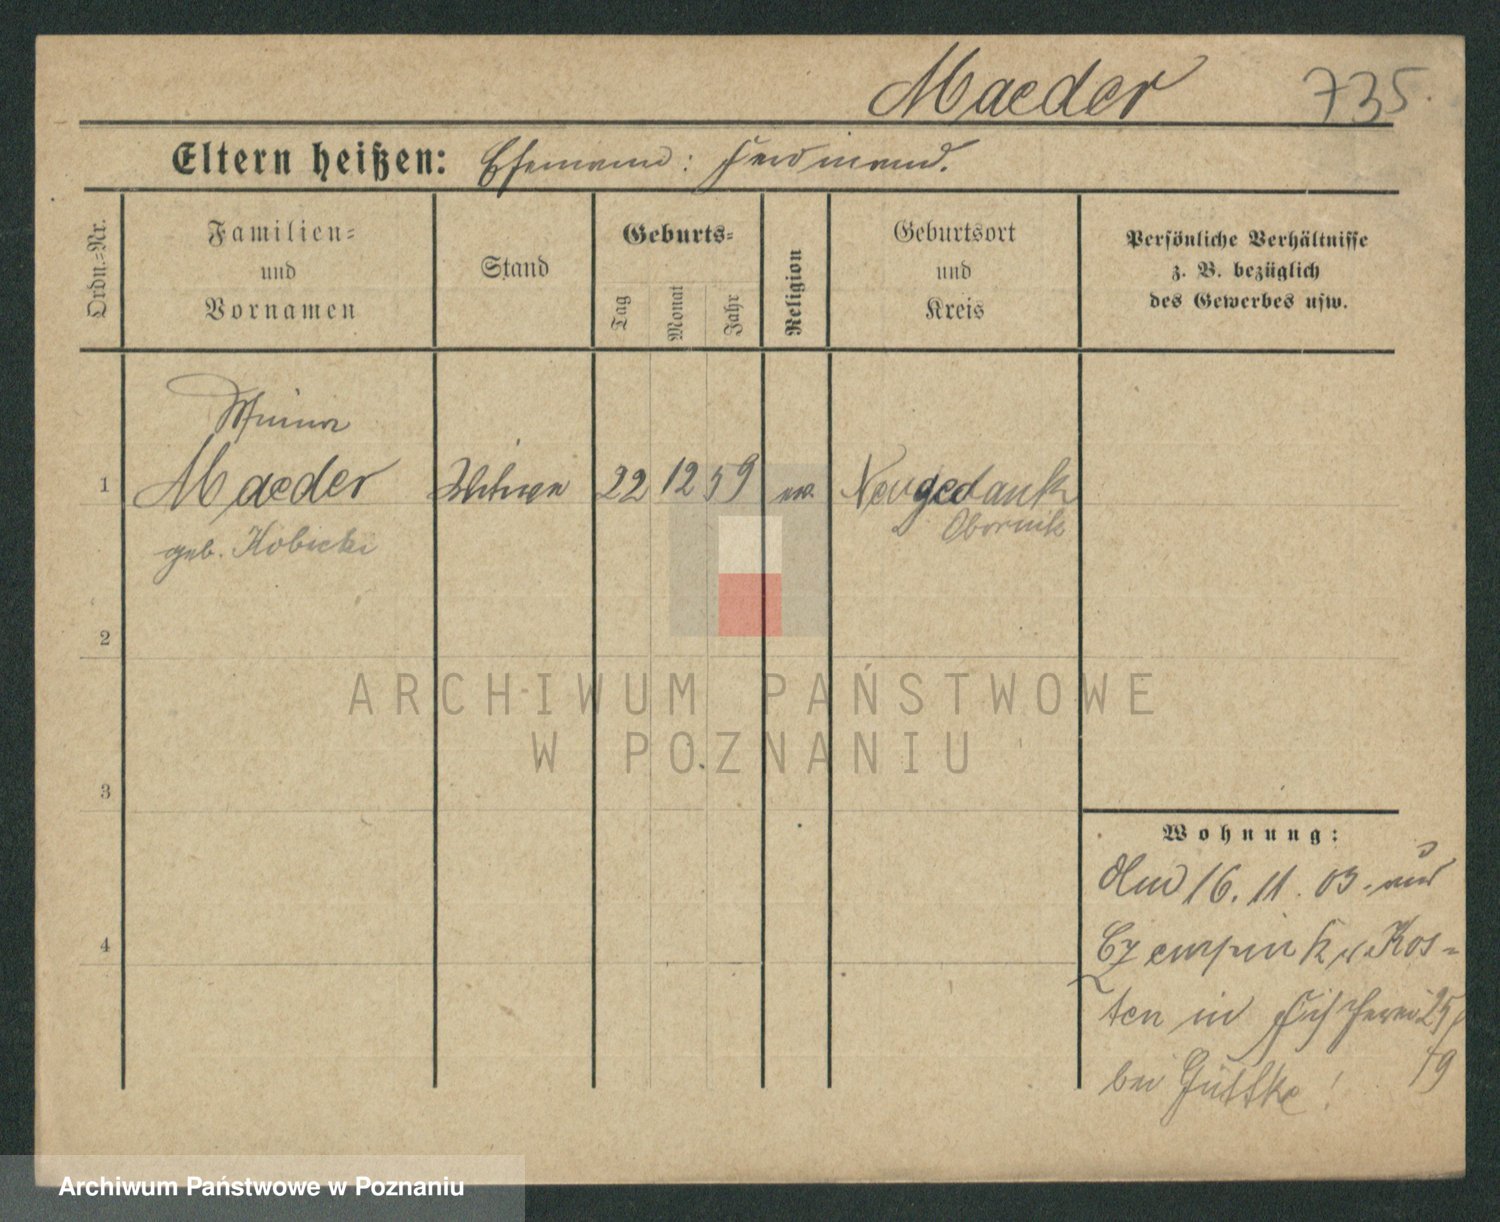 Maeder 735.
Eltern heißen: Ehemann: Ferdinand.
Ordn.=Nr.
Familien=
und
Vornamen
Stand
Geburts=
Tag
Monat
Jahr
Religion
Geburtsort
und
Kreis
Persönliche Verhältnisse
z. B. bezüglich
des Gewerbes usw.
Minna
1 Maeder Witwe 22 12 59 ev. Neugedank
geb. Kobicki Obornik
2
3
4
Wohnung:
Am 16. 11. 03. aus
Czempin Kr. Kos=
ten in Fischerei 25
19
bei Güttke!
ARCHIWUM PAŃSTWOWE
W POZNANIU
Archiwum Państwowe w Poznaniu